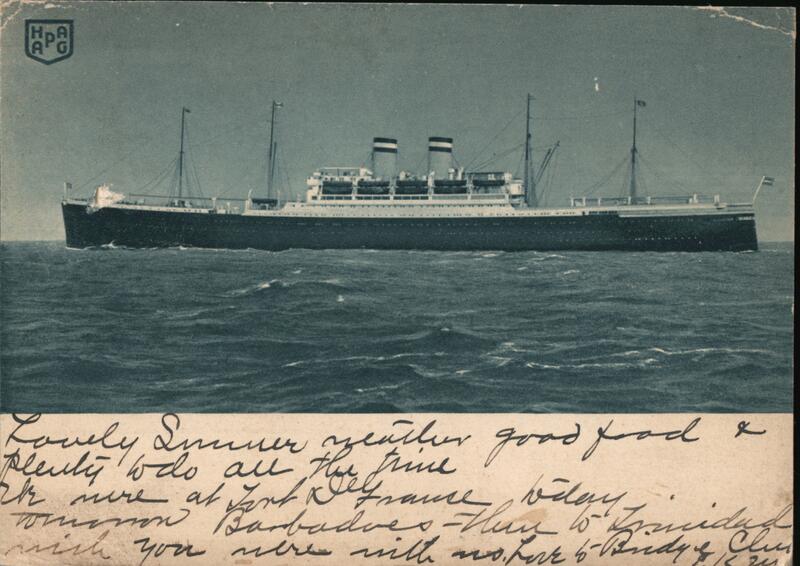 HAPAG
Lovely Summer weather good food &
plenty to do all the time
We were at Fort De France today
tomorrow Barbadoes = then to Trinidad
wish you were with us. Love to Bridge Club